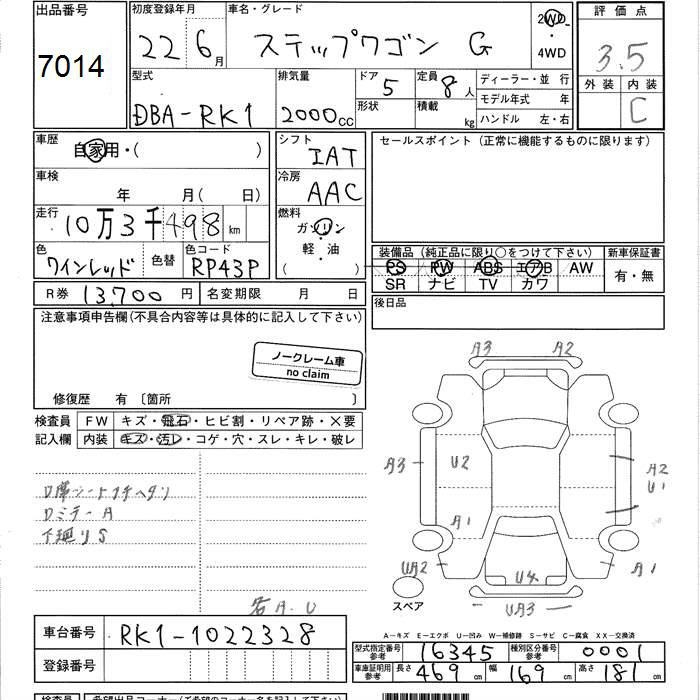 出品番号 初度登録年月 車名・グレード 2WD 評価点
7014 22 6月 ステップワゴン G ・ 4WD 3.5
型式 排気量 ドア 5 定員 8人 ディーラー・並行 外装 内装
DBA-RK1 2000cc 形状 積載 kg モデル年式 年 C
ハンドル 左・右
車歴 自家用・( ) シフト IAT セールスポイント (正常に機能するものに限ります)
車検 年 月( 日) 冷房 AAC
走行 10万3千498km 燃料 ガソリン
軽・油
( )
色 ワインレッド 色替 色コード RP43P 装備品 (純正品に限り○をつけて下さい) 新車保証書
PS PW ABS エアB AW 有・無
SR ナビ TV カワ
R券 13,700 円 名変期限 月 日 後日品
注意事項申告欄(不具合内容等は具体的に記入して下さい)
ノークレーム車
no claim
修復歴 有 〔箇所 〕
検査員 FW キズ・飛石・ヒビ割・リペア跡・×要
記入欄 内装 キズ・汚レ・コゲ・穴・スレ・キレ・破レ
A3 A2
A3 U2 A2
U1
A1
UA2 A1
U4
UA3
スペア
D席シートフチヘタリ
DミラーA
下廻りS
若A.U
A-キズ E-エクボ U-凹み W-補修跡 S-サビ C-腐食 XX-交換済
車台番号 RK1-1022328 型式指定番号 参考 16345 種別区分番号 参考 0001
登録番号 車庫証明用 参考 長さ 469cm 幅 169cm 高さ 181cm
検査員 希望出品コーナー